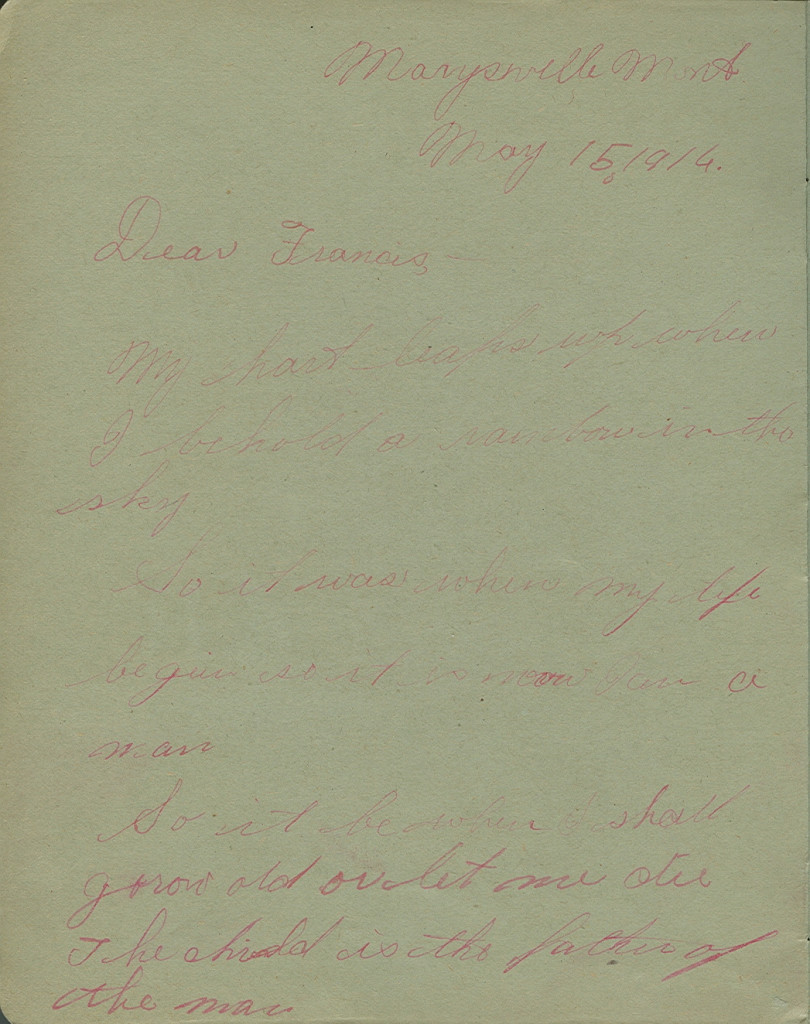 Marysville Mont
May 15, 1914.
Dear Francis,—
My hart leaps up when
I behold a rainbow in the
sky
So it was when my life
begin so it is now I am a
man
So it be when I shall
gorow old or let me die
The child is the father of
the man